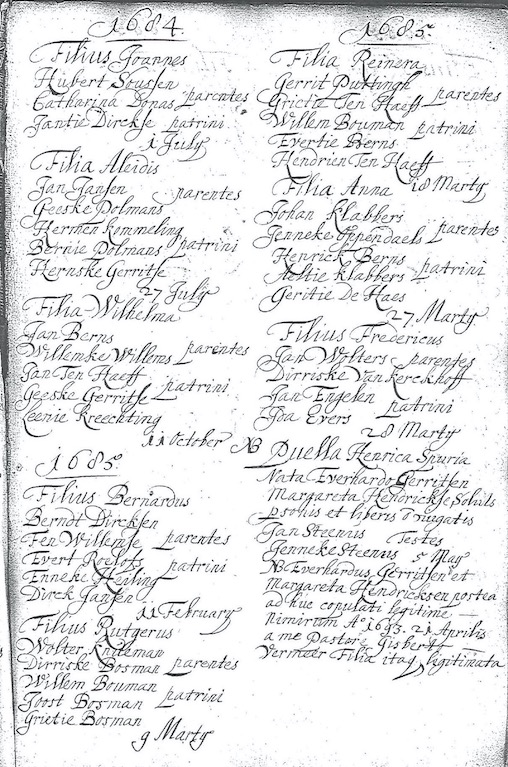 1684.
Filius Joannes
Hubert Soussen
Catharina Donas parentes
Jantie Dirckse patrini
1 July
Filia Aleidis
Jan Jansen parentes
Geeske Dolmans
Hermen Kommeling
Bernie Dolmans patrini
Hernske Gerritse
27 July
Filia Wilhelma
Jan Berns
Willemke Willems parentes
Jan Ten Haeff
Geeske Gerritse patrini
Leenie Kreechting
11 October
1685.
Filius Bernardus
Berndt Dircksen
Fen Willemse parentes
Evert Roelofs
Enneke Heiling patrini
Dirck Jansen
11 February
Filius Rutgerus
Wolter Knileman
Dirriske Bosman parentes
Willem Bouman
Joost Bosman patrini
Grietie Bosman
9 Marty
1685.
Filia Reinera
Gerrit Puttingh
Grietie Ten Haeff parentes
Willem Bouman patrini
Evertie Berns
Hendrien Ten Haeff
18 Marty
Filia Anna
Johan Klabbers
Jenneke Eppendaels parentes
Henrick Berns
Aeltie Klabbers patrini
Geritie De Haes
27 Marty
Filius Fredericus
Jan Wolters parentes
Dirriske Van Kerckhoff
Jan Engelen patrini
Ida Evers
28 Marty
NB Puella Henrica Spuria
Nata Everhardo Gerritsen
Margareta Hendrickse Solutis
psonis et liberis
Jan Steenus Testes
Genneke Steenus 5 May
NB Everhardus Gerritsen et
Margareta Hendricksen postea
ad huc copulati legitime
nimirum Ao 1693. 21 Aprilis
a me Pastore Gisberto
Vermeer Filia itaq legitimata